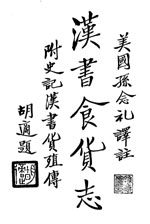 美國孫念礼譯註
漢書食貨志
附史記漢書貨殖傳
胡適題